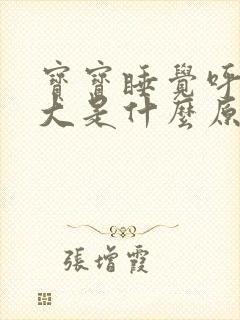 寶寶睡覺呼
大是什麼原
張增霞